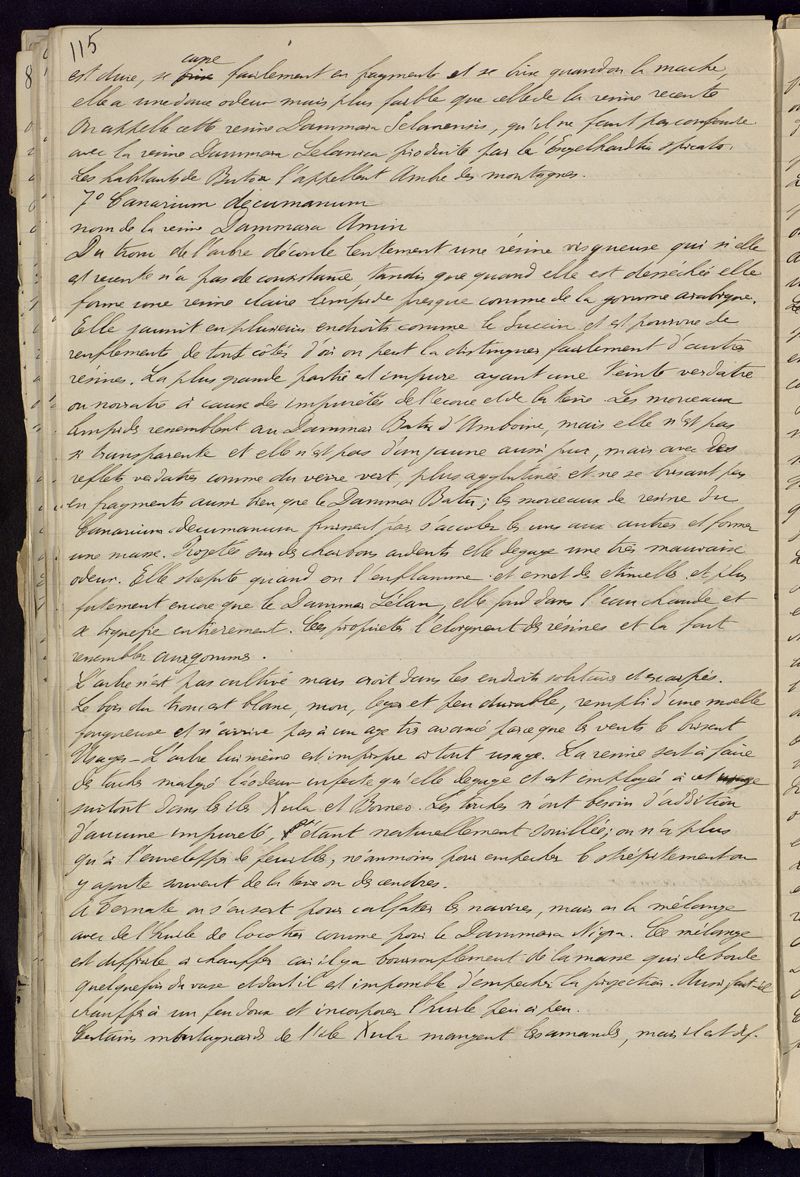 115
est dure, se casse facilement en fragments et se brise quand on la mache,
elle a une douce odeur mais plus faible que celle de la resine recente
On appelle cette resine Dammara Selanensis, qu'il ne faut pas confondre
avec la resine Dammara Selanica produite par le Engelhardtia spicata.
Les habitants de Buton l'appellent Ambre des montagnes.
7° Canarium decumanum
nom de la resine Dammara Amin
Du tronc de l'arbre découle lentement une résine visqueuse qui si elle
est recente n'a pas de consistance, tandis que quand elle est desséchée elle
forme une resine claire limpide presque comme de la gomme arabique.
Elle jaunit en plusieurs endroits comme le Succin et est pourvue de
renflements de tout côtés d'où on peut la distinguer facilement d'autres
résines. La plus grande partie est impure ayant une teinte verdatre
ou noiratre à cause des impuretés de l'écorce et de la terre. Les morceaux
limpides resemblent au Dammar Batu d'Amboine, mais elle n'est pas
si transparente et elle n'est pas d'un jaune aussi pur, mais avec des
reflets verdatres comme du verre vert, plus agglutinée et ne se brisant pas
en fragments aussi bien que le Dammar Batu; les morceaux de resine du
Canarium decumanum finissent par s'accoler les uns aux autres et former
une masse. Projetée sur des charbons ardents elle degage une très mauvaise
odeur. Elle crepite quand on l'enflamme et emet des etincelles et plus
fortement encore que le Dammar Sélan, elle fond dans l'eau chaude et
se liquefie entierement. Ces propriétés l'éloignent des résines et la font
resembler aux gommes.
L'arbre n'est pas cultivé mais croit dans les endroits solitaires et escarpés.
Le bois du tronc est blanc, mou, leger et peu durable, rempli d'une moelle
fongueuse et n'arrive pas à un age très avancé parce que les vents le brisent
Usages – L'arbre lui même est impropre à tout usage. La resine sert à faire
des torches malgré l'odeur infecte qu'elle degage et est employée à cet usage
surtout dans les iles Xula et Borneo. Les torches n'ont besoin d'addition
d'aucune impureté, étant naturellement souillée; on n'a plus
qu'à l'envelopper de feuilles, néanmoins pour empecher le crépitement on
y ajoute souvent de la terre ou des cendres.
A Ternate on s'en sert pour calfater les navires, mais on la mélange
avec de l'huile de cocotier comme pour le Dammara Nigra. Ce mélange
est difficile à chauffer car il y a boursouflement de la masse qui deborde
quelquefois du vase et dont il est impossible d'empecher la projection. Aussi faut-il
chauffer à un feu doux et incorporer l'huile peu à peu.
Certains montagnards de l'ile Xula mangent les amandes, mais il est dif-